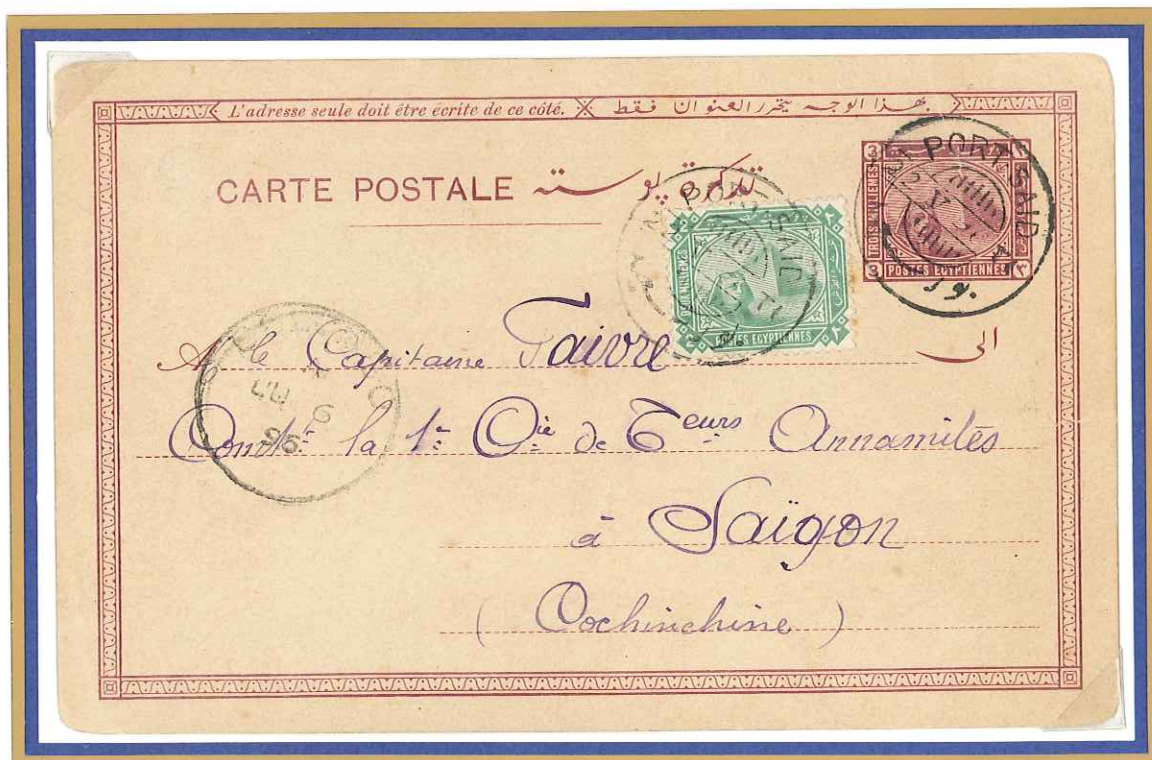 L'adresse seule doit être écrite de ce côté. بهذا الوجه يحرر العنوان فقط
CARTE POSTALE تذكرة پوسته
3 TROIS MILLIEMES 3
POSTES EGYPTIENNES ٣
PORT SAID
PORT SAID
POSTES EGYPTIENNES
A le Capitaine Faivre الى
Comdt la 1re Cie de Teurs Annamites
à Saïgon
(Cochinchine)
96